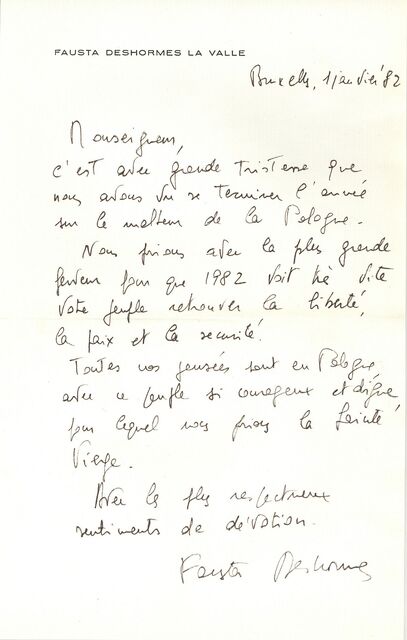 FAUSTA DESHORMES LA VALLE
Bruxelles, 1 janvier 82
Monseigneur,
c'est avec grande tristesse que
nous avons vu se terminer l'année
sur le malheur de la Pologne.
Nous prions avec la plus grande
ferveur pour que 1982 voit très vite
votre peuple retrouver la liberté,
la paix et la sécurité.
Toutes nos pensées sont en Pologne,
avec ce peuple si courageux et digne,
pour lequel nous prions la Sainte
Vierge.
Avec les plus respectueux
sentiments de dévotion.
Fausta Deshormes